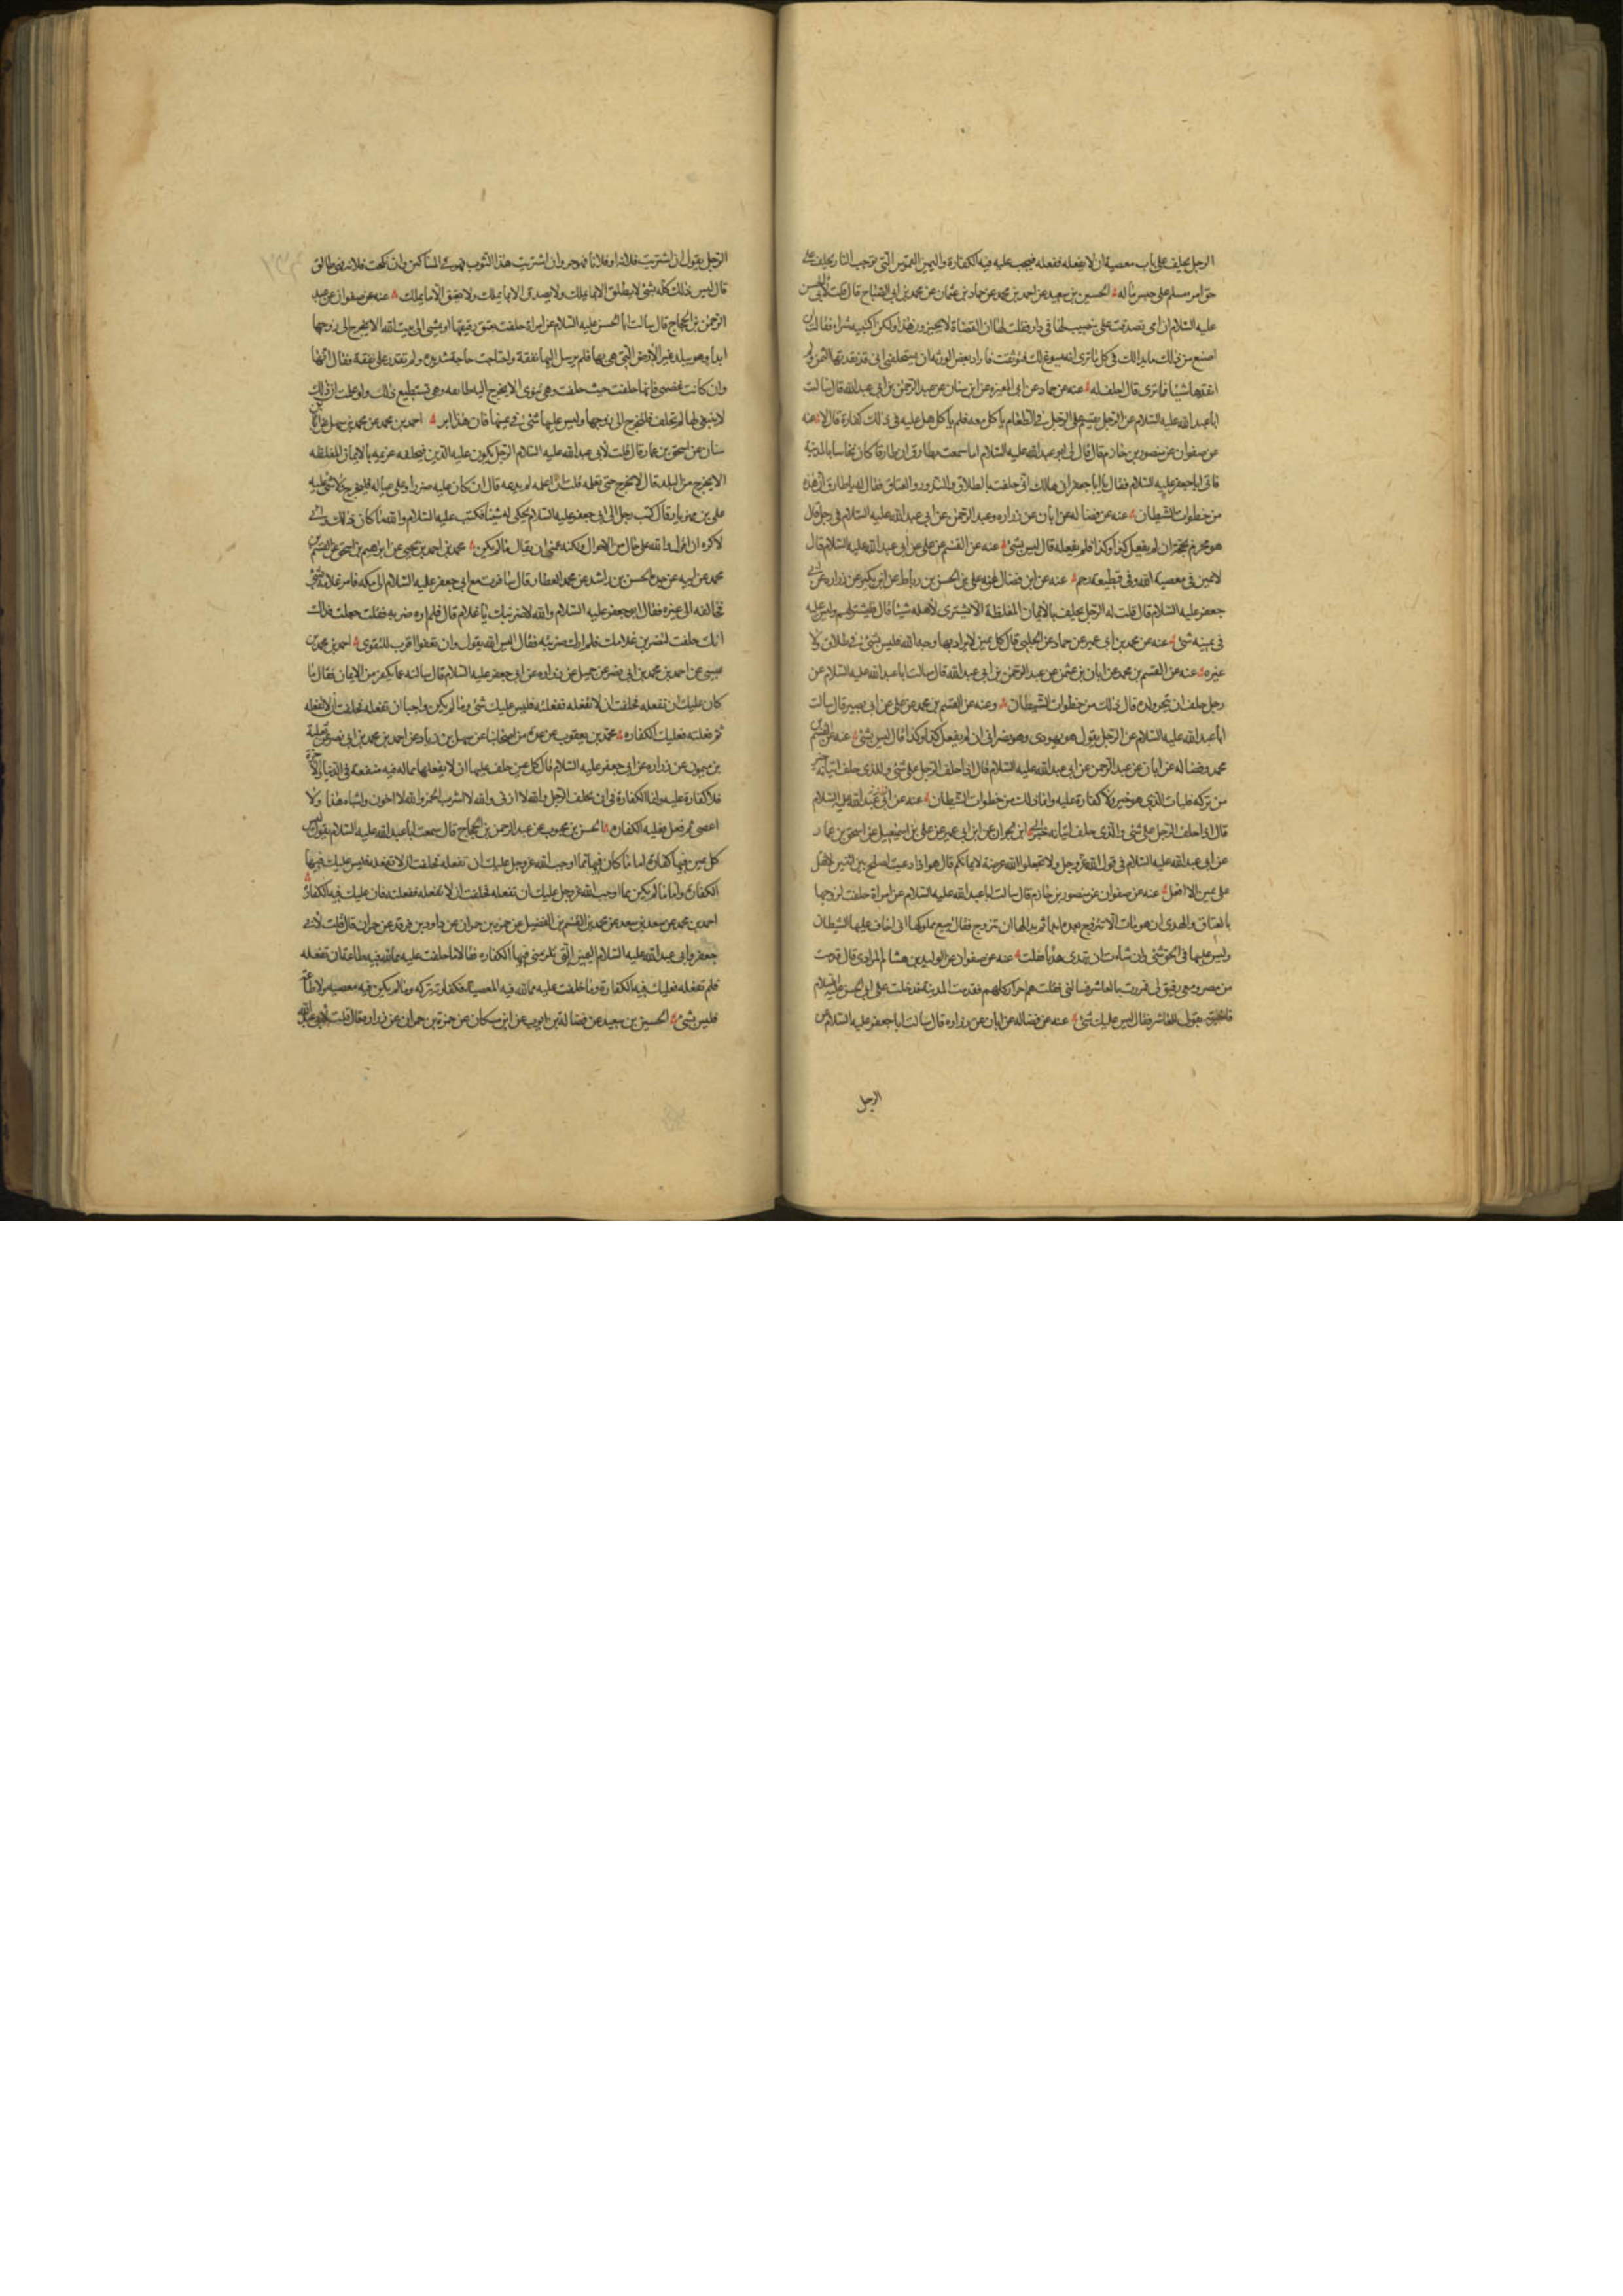 الرجل يحلف على باب معصية ان لا يفعله ففعله فيجب عليه فيه الكفارة واليمين الغموس التي توجب النار يحلف على
حق امرء مسلم على حبس ماله الحسين بن سعيد عن احمد بن محمد عن حماد بن عثمان عن محمد بن ابي الصباح قال قلت لابي الحسن
عليه السلام ان امي تصدقت علي بنصيب لها في دار فقلت لها ان القضاة لا يجيزون هذا ولكن اكتبيه شراء فقالت
اصنع من ذلك ما بدا لك في كل ما ترى انه يسوغ لك فتوثقت فاراد بعض الورثة ان يستحلفني اني قد نقدتها الثمن ولم
انقدها شيئا فما ترى قال احلف له عنه عن حماد عن ابي المغيره عن ابن سنان عن عبد الرحمن بن ابي عبد الله قال سالت
ابا عبد الله عليه السلام عن الرجل يقسم على الرجل في الطعام ياكل معه فلم ياكل هل عليه في ذلك كفارة قال لا عنه
عن صفوان عن منصور بن حازم قال قال لي ابو عبد الله عليه السلام اما سمعت بطارق ان طارقا كان نخاسا بالمدينة
فاتى ابا جعفر عليه السلام فقال يا ابا جعفر اني هالك اني حلفت بالطلاق والنذور والعتاق فقال له يا طارق ان هذه
من خطوات الشيطان عنه عن فضاله عن ابان عن زراره وعبد الرحمن عن ابي عبد الله عليه السلام في رجل قال
هو محرم بحجة ان لم يفعل كذا وكذا فلم يفعله قال ليس بشئ عنه عن القسم عن علي عن ابي عبد الله عليه السلام قال
لا يمين في معصية الله وفي قطيعة رحم عنه عن ابن فضال عن علي بن الحسن بن رباط عن ابن بكير عن زراره عن ابي
جعفر عليه السلام قال قلت له الرجل يحلف بالايمان المغلظة الا يشتري لاهله شيئا قال فليشتر لهم وليس عليه
في يمينه شئ عنه عن محمد بن ابي عمير عن حماد عن الحلبي قال كل يمين لا يراد بها وجه الله فليس بشئ في طلاق ولا
غيره عنه عن القسم بن محمد عن ابان بن عثمن عن عبد الرحمن بن ابي عبد الله قال سالت ابا عبد الله عليه السلام عن
رجل حلف ان ينحر ولده قال ذلك من خطوات الشيطان وعنه عن القسم بن محمد عن علي عن ابي بصير قال سالت
ابا عبد الله عليه السلام عن الرجل يقول هو يهودي وهو نصراني ان لم يفعل كذا وكذا قال ليس بشئ عنه عن القسم بن
محمد وفضاله عن ابان عن عبد الرحمن عن ابي عبد الله عليه السلام قال اذا حلف الرجل على شئ والذي حلف اتيانه خير
من تركه فليات الذي هو خير ولا كفارة عليه وانما ذلك من خطوات الشيطان عنه عن ابي عبد الله عليه السلام
قال اذا حلف الرجل على شئ والذي حلف اتيانه خير ابن ابي عمير عن علي بن اسمعيل عن اسحق بن عمار
عن ابي عبد الله عليه السلام في قول الله عز وجل ولا تجعلوا الله عرضة لايمانكم قال هو اذا دعيت لصلح بين اثنين لا تقل
علي يمين الا افعل عنه عن صفوان عن منصور بن حازم قال سالت ابا عبد الله عليه السلام عن امراة حلفت لزوجها
بالعتاق والهدي ان هو مات الا تتزوج بعده ابدا ثم بدا لها ان تتزوج فقال تبيع مملوكها اني اخاف عليها الشيطان
وليس عليها في الحق شئ وان شاءت ان تهدي هديا فعلت عنه عن صفوان عن الوليد بن هشام المرادي قال قدمت
من مصر ومعي رقيق لي فمررت بالعاشر فسالني فقلت هم احرار كلهم فقدمت المدينة فدخلت على ابي الحسن عليه السلام
فاخبرته بقولي للعاشر فقال ليس عليك شئ عنه عن فضاله عن ابان عن زراره قال سالت ابا جعفر عليه السلام عن
الرجل
الرجل يقول ان اشتريت فلانه او فلانا فهو حر وان اشتريت هذا الثوب فهو في المساكين وان نكحت فلانه فهي طالق
قال ليس ذلك كله بشئ لا يطلق الا ما يملك ولا يصدق الا ما يملك ولا يعتق الا ما يملك عنه عن صفوان عن عبد
الرحمن بن الحجاج قال سالت ابا الحسن عليه السلام عن امراة حلفت بعتق رقيقها او يمشي الى بيت الله الا يخرج الى زوجها
ابدا وهو ببلد غير الارض التي هي بها فلم يرسل اليها نفقة واحتاجت حاجة شديده ولم تقدر على نفقة فقال انها
وان كانت غضبى فانها حلفت حيث حلفت وهي تنوي الا يخرج اليه طائعه وهي تستطيع ذلك ولو علمت ان ذلك
لا ينبغي لها لم تحلف فلتخرج الى زوجها وليس عليها شئ في يمينها فان هذا ابر احمد بن محمد عن محمد بن سهل عن
سنان عن اسحق بن عمار قال قلت لابي عبد الله عليه السلام الرجل يكون عليه الدين فيحلفه غريمه بالايمان المغلظه
الا يخرج من البلد قال لا يخرج حتى يعلمه قلت ان اعلمه لم يدعه قال ان كان عليه ضررا وعلى عياله فليخرج ولا شئ عليه
علي بن مهزيار قال كتب رجل الى ابي جعفر عليه السلام يحكي له شيئا فكتب عليه السلام والله ما كان ذلك واني
لاكره ان اقول والله على حال من الاحوال ولكنه غمني ان يقال ما لم يكن محمد بن احمد بن يحيى عن ابرهيم بن اسحق عن القسم بن
محمد عن ابيه عن جده الحسن بن راشد عن محمد العطار قال سافرت مع ابي جعفر عليه السلام الى مكه فامر غلامه بشئ
فخالفه الى غيره فقال ابو جعفر عليه السلام والله لاضربنك يا غلام قال فلم اره ضربه فقلت جعلت فداك
انك حلفت لتضربن غلامك فلم ارك ضربته فقال اليس الله يقول وان تعفوا اقرب للتقوى احمد بن محمد بن
عيسى عن احمد بن محمد بن ابي نصر عن جميل عن زراره عن ابي جعفر عليه السلام قال سالته عما يكفر من الايمان فقال ما
كان عليك ان تفعله فحلفت ان لا تفعله ففعلته فليس عليك شئ وما لم يكن واجبا ان تفعله فحلفت ان لا تفعله
ثم فعلته فعليك الكفاره محمد بن يعقوب عن عدة من اصحابنا عن سهل بن زياد عن احمد بن محمد بن ابي نصر عن ثعلبة
بن ميمون عن زراره عن ابي جعفر عليه السلام قال كل يمين حلف عليها ان لا يفعلها مما له فيه منفعة في الدنيا والآخرة
فلا كفارة عليه وانما الكفارة في ان يحلف الرجل والله لا ازني والله لا اشرب الخمر والله لا اخون واشباه هذا ولا
اعصي ثم فعل فعليه الكفاره الحسن بن محبوب عن عبد الرحمن بن الحجاج قال سمعت ابا عبد الله عليه السلام يقول ليس
كل يمين فيها كفارة اما ما كان فيها مما اوجب الله عز وجل عليك ان تفعله فحلفت ان لا تفعله فليس عليك فيها
الكفارة واما ما لم يكن مما اوجب الله عز وجل عليك ان تفعله فحلفت ان لا تفعله ففعلته فان عليك فيه الكفارة
احمد بن محمد عن سعد بن سعد عن محمد بن القسم بن الفضيل عن حمزه بن حمران عن داود بن فرقد عن حمران قال قلت لابي
جعفر وابي عبد الله عليه السلام اليمين التي تلزمني فيها الكفاره فقالا ما حلفت عليه مما لله فيه طاعة ان تفعله
فلم تفعله فعليك فيه الكفارة وما حلفت عليه مما لله فيه المعصية فكفارته تركه وما لم يكن فيه معصيه ولا طاعة
فليس بشئ الحسين بن سعيد عن فضالة بن ايوب عن ابن مسكان عن حمزة بن حمران عن زراره قال قلت لابي عبد الله